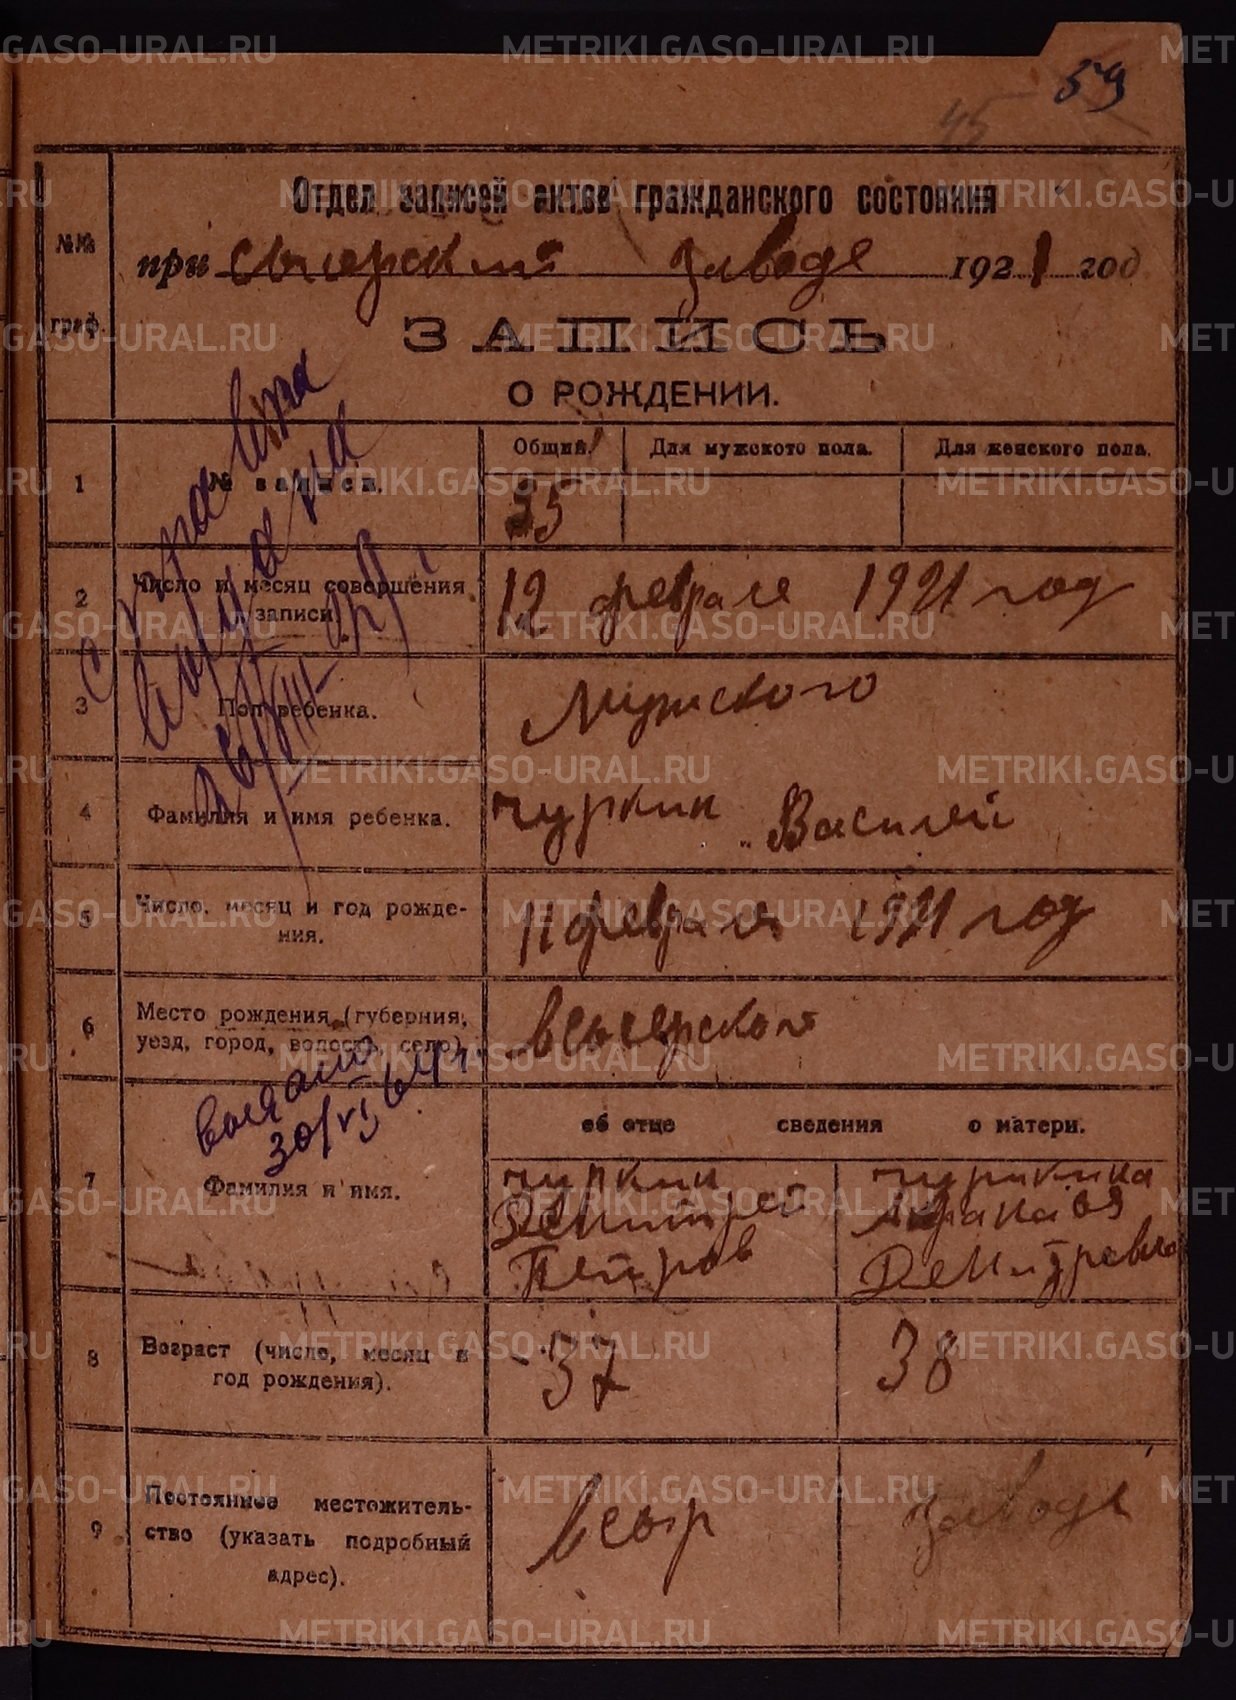 59
45
Отдел записей актов гражданского состояния
№№ граф.
при Сысерском заводе 1921 год
ЗАПИСЬ
О РОЖДЕНИИ.
Общий. Для мужского пола. Для женского пола.
1 № записи. 35
2 Число и месяц совершения записи. 12 февраля 1921 год
3 Пол ребенка. Мужского
4 Фамилия и имя ребенка. чуркин Василей
5 Число, месяц и год рожде-
ния. 11 февраля 1921 год
6 Место рождения (губерния,
уезд, город, волость, село). всысерском
справка
выдана
выдано
30/VI 64 г.
об отце сведения о матери.
7 Фамилия и имя.
чуркин
Демитрей
Петров
чуркина
Демитревна
8 Возраст (число, месяц и
год рождения). 37 38
9 Постоянное местожитель-
ство (указать подробный
адрес). всыр заводе
METRIKI.GASO-URAL.RU